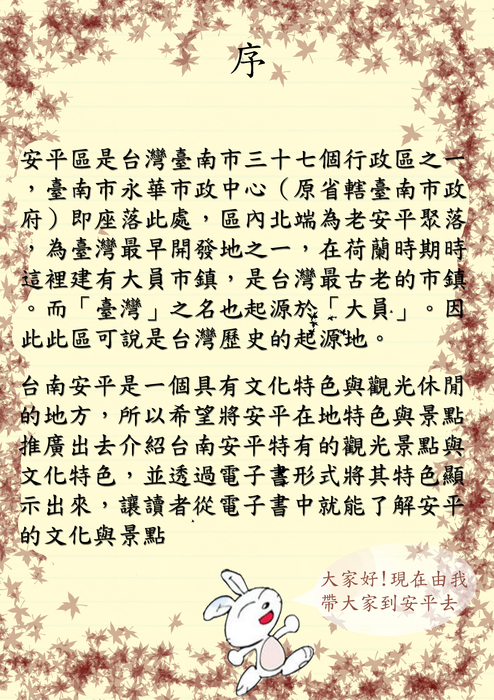 序
安平區是台灣臺南市三十七個行政區之一
，臺南市永華市政中心（原省轄臺南市政
府）即座落此處，區內北端為老安平聚落
，為臺灣最早開發地之一，在荷蘭時期時
這裡建有大員市鎮，是台灣最古老的市鎮
。而「臺灣」之名也起源於「大員」。因
此此區可說是台灣歷史的起源地。
台南安平是一個具有文化特色與觀光休閒
的地方，所以希望將安平在地特色與景點
推廣出去介紹台南安平特有的觀光景點與
文化特色，並透過電子書形式將其特色顯
示出來，讓讀者從電子書中就能了解安平
的文化與景點
大家好!現在由我
帶大家到安平去